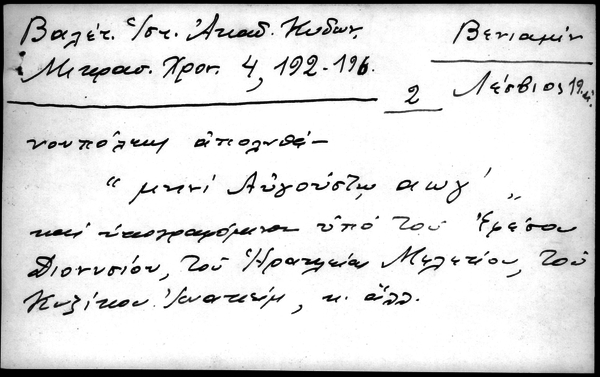 Βαλέτ. Ἱστ. Ἀκαδ. Κυδων.
Βενιαμὶν
Μικρασ. Χρον. 4, 192-196.
Λέσβιος 19
2
νουπόλεως ἀπολυθὲν
“ μηνὶ Αὐγούστῳ αωγ' „
καὶ ὑπογραφόμενον ὑπὸ τοῦ Ἐφέσου
Διονυσίου, τοῦ Ἡρακλείας Μελετίου, τοῦ
Κυζίκου Ἰωακεὶμ, κ. ἄλλ.